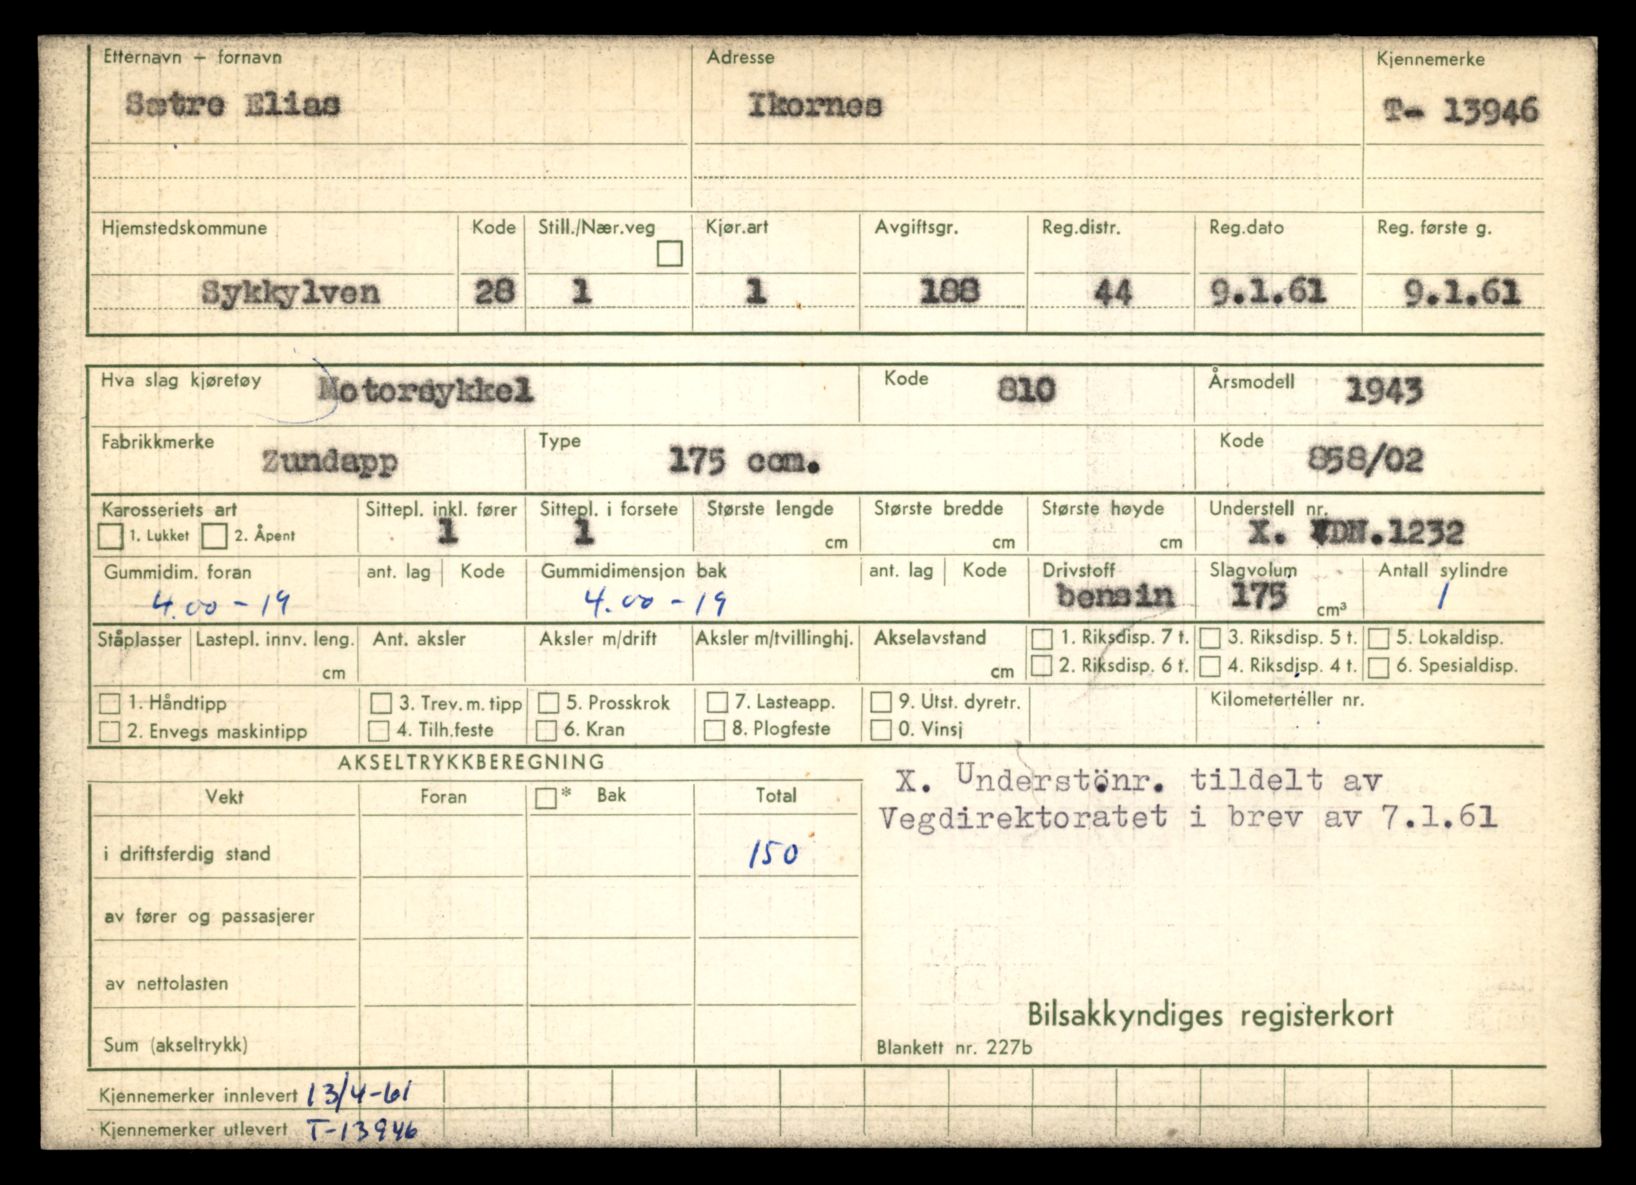 Etternavn – fornavn Adresse Kjennemerke
Sætre Elias Ikornes T- 13946
Hjemstedskommune Kode Still./Nær.veg Kjør.art Avgiftsgr. Reg.distr. Reg.dato Reg. første g.
Sykkylven 28 1 1 188 44 9.1.61 9.1.61
Hva slag kjøretøy Motorsykkel Kode 810 Årsmodell 1943
Fabrikkmerke Zundapp Type 175 ccm. Kode 858/02
Karosseriets art Sittepl. inkl. fører Sittepl. i forsete Største lengde Største bredde Største høyde Understell nr.
1. Lukket 2. Åpent 1 1 cm cm cm X. VDN.1232
Gummidim. foran ant. lag Kode Gummidimensjon bak ant. lag Kode Drivstoff Slagvolum Antall sylindre
4.00 - 19 4.00 - 19 bensin 175 cm³ 1
Ståplasser Lastepl. innv. leng. Ant. aksler Aksler m/drift Aksler m/tvillinghj. Akselavstand 1. Riksdisp. 7 t. 3. Riksdisp. 5 t. 5. Lokaldisp.
cm cm 2. Riksdisp. 6 t. 4. Riksdisp. 4 t. 6. Spesialdisp.
1. Håndtipp 3. Trev. m. tipp 5. Prosskrok 7. Lasteapp. 9. Utst. dyretr. Kilometerteller nr.
2. Envegs maskintipp 4. Tilh.feste 6. Kran 8. Plogfeste 0. Vinsj
AKSELTRYKKBEREGNING
X. Understönr. tildelt av
Vekt Foran * Bak Total
Vegdirektoratet i brev av 7.1.61
i driftsferdig stand 150
av fører og passasjerer
av nettolasten
Bilsakkyndiges registerkort
Sum (akseltrykk) Blankett nr. 227b
Kjennemerker innlevert 13/4-61
Kjennemerker utlevert T-13946